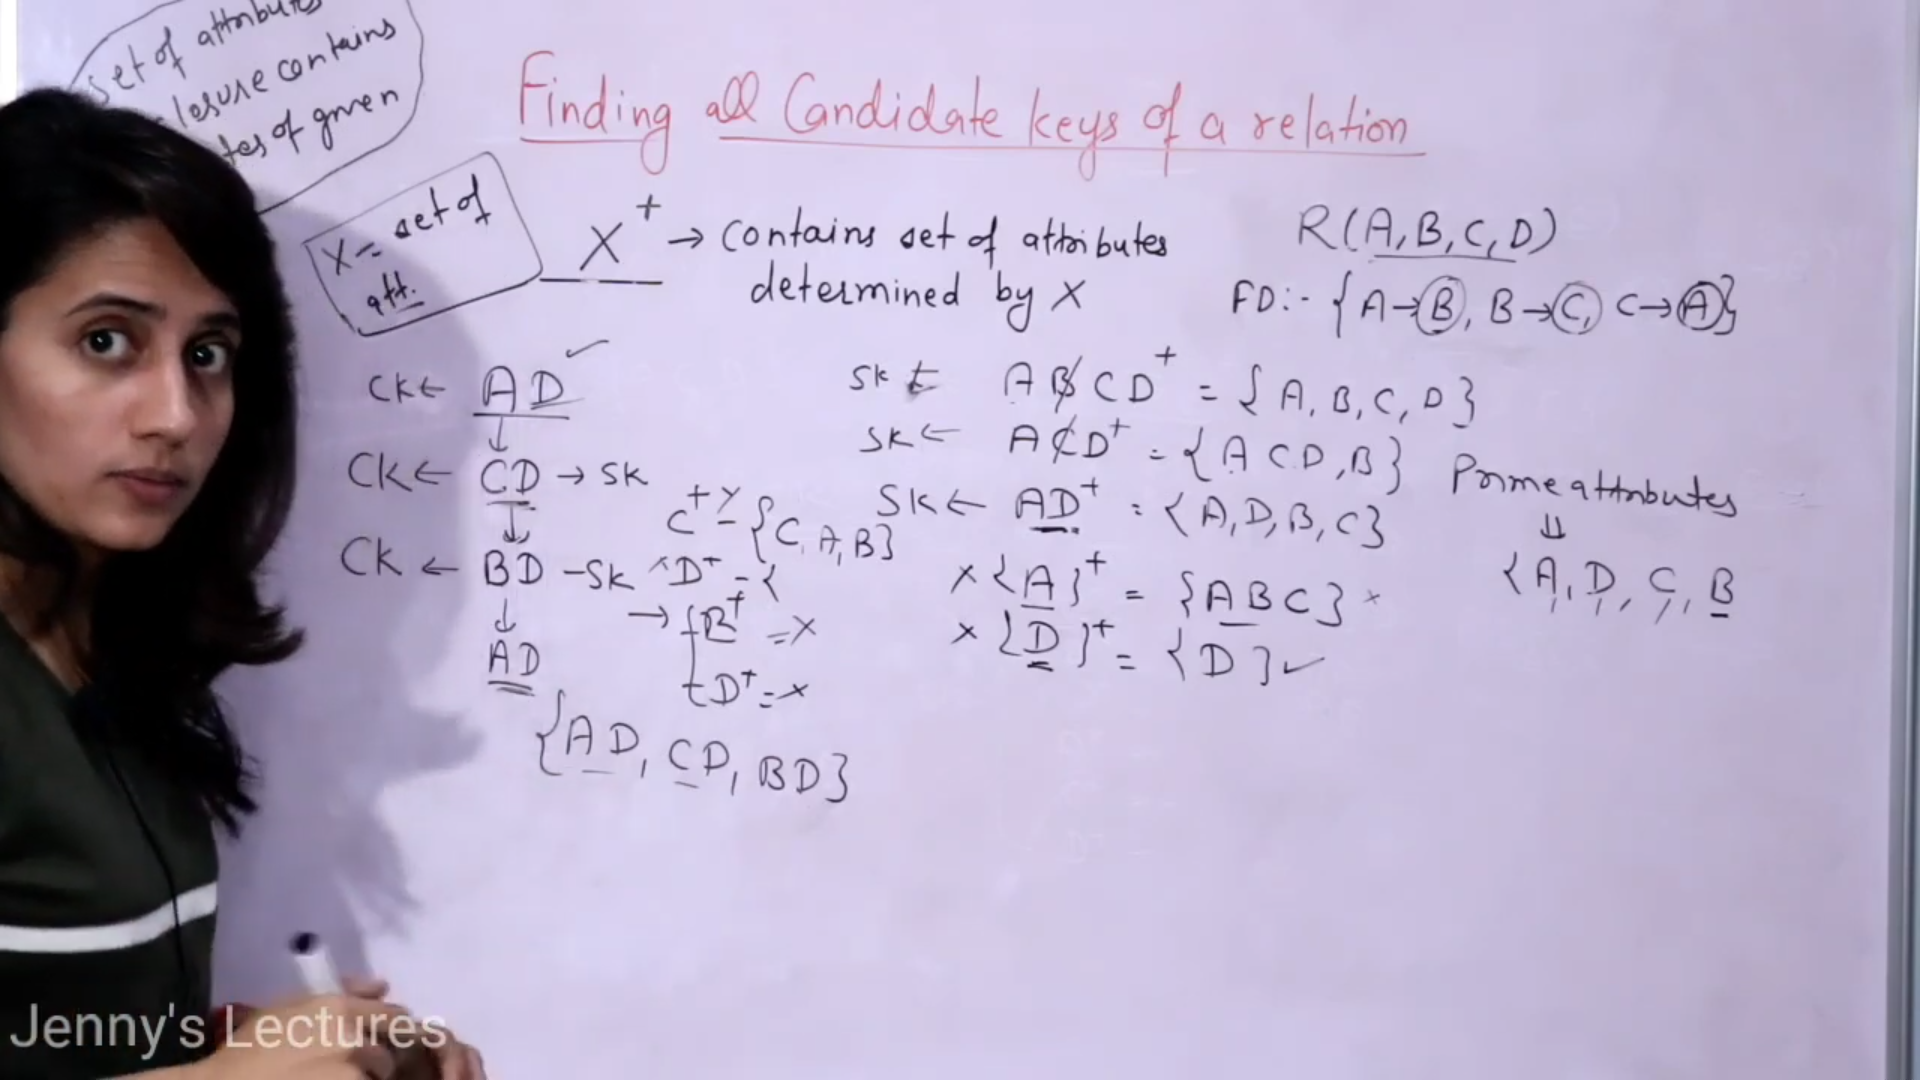 set of attributes
losure contains
tes of given
Finding all Candidate keys of a relation
X = set of
att.
X+ → contains set of attributes
determined by X
R(A,B,C,D)
FD:- {A→B, B→C, C→A}
CK← AD ✓
↓
CK← CD → SK
↓
CK ← BD -SK
↓
AD
{AD, CD, BD}
C+ = {C, A, B}
D+ = {
→ B+ = x
D+ = x
SK ← ABCD+ = {A, B, C, D}
SK ← ACD+ = {A C D, B}
SK ← AD+ = {A, D, B, C}
x {A}+ = {ABC} x
x {D}+ = {D} ✓
Prime attributes
⇓
{A, D, C, B
Jenny's Lectures